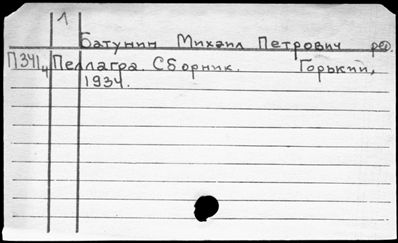 1
Батунин Михаил Петрович ред.
П341 Пеллагра. Сборник. Горький,
1934.